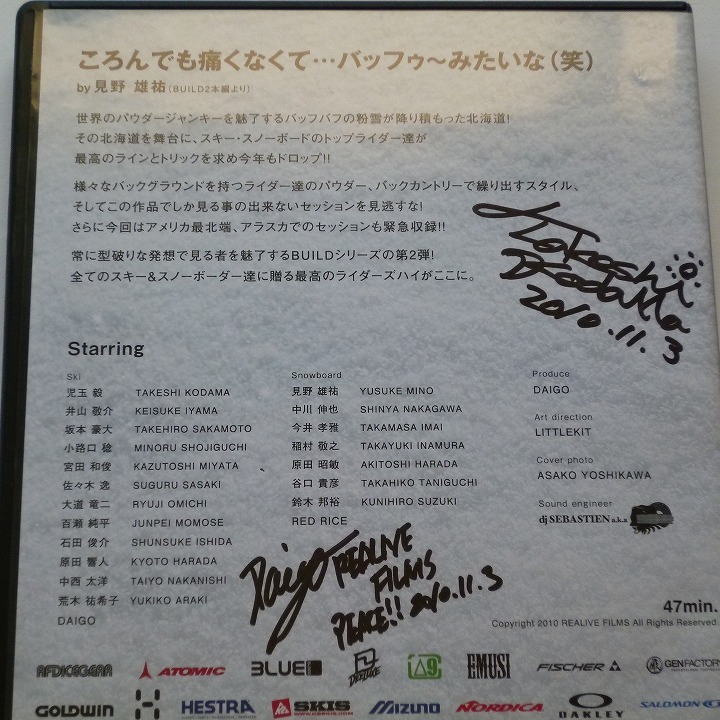 ころんでも痛くなくて…バッフゥ〜みたいな(笑)
by 見野 雄祐(BUILD2本編より)
世界のパウダージャンキーを魅了するバッフバフの粉雪が降り積もった北海道!
その北海道を舞台に、スキー・スノーボードのトップライダー達が
最高のラインとトリックを求め今年もドロップ!!
様々なバックグラウンドを持つライダー達のパウダー、バックカントリーで繰り出すスタイル、
そしてこの作品でしか見る事の出来ないセッションを見逃すな!
さらに今回はアメリカ最北端、アラスカでのセッションも緊急収録!!
常に型破りな発想で見る者を魅了するBUILDシリーズの第2弾!
全てのスキー&スノーボーダー達に贈る最高のライダーズハイがここに。
Takeshi
Kodama
2010.11.3
Starring
Ski
児玉 毅 TAKESHI KODAMA
井山 敬介 KEISUKE IYAMA
坂本 豪大 TAKEHIRO SAKAMOTO
小路口 稔 MINORU SHOJIGUCHI
宮田 和俊 KAZUTOSHI MIYATA
佐々木 逸 SUGURU SASAKI
大道 竜二 RYUJI OMICHI
百瀬 純平 JUNPEI MOMOSE
石田 俊介 SHUNSUKE ISHIDA
原田 響人 KYOTO HARADA
中西 太洋 TAIYO NAKANISHI
荒木 祐希子 YUKIKO ARAKI
DAIGO
Snowboard
見野 雄祐 YUSUKE MINO
中川 伸也 SHINYA NAKAGAWA
今井 孝雅 TAKAMASA IMAI
稲村 敬之 TAKAYUKI INAMURA
原田 昭敏 AKITOSHI HARADA
谷口 貴彦 TAKAHIKO TANIGUCHI
鈴木 邦裕 KUNIHIRO SUZUKI
RED RICE
Produce
DAIGO
Art direction
LITTLEKIT
Cover photo
ASAKO YOSHIKAWA
Sound engineer
dj SEBASTIEN a.k.a
Daigo REALIVE
FILMS
PEACE!! 2010.11.3
47min.
Copyright 2010 REALIVE FILMS All Rights Reserved.
AFDICEGEAR ATOMIC BLUE DEELUXE EMUSI FISCHER GENFACTORY
GOLDWIN HESTRA K2 SKIS MIZUNO NORDICA OAKLEY SALOMON